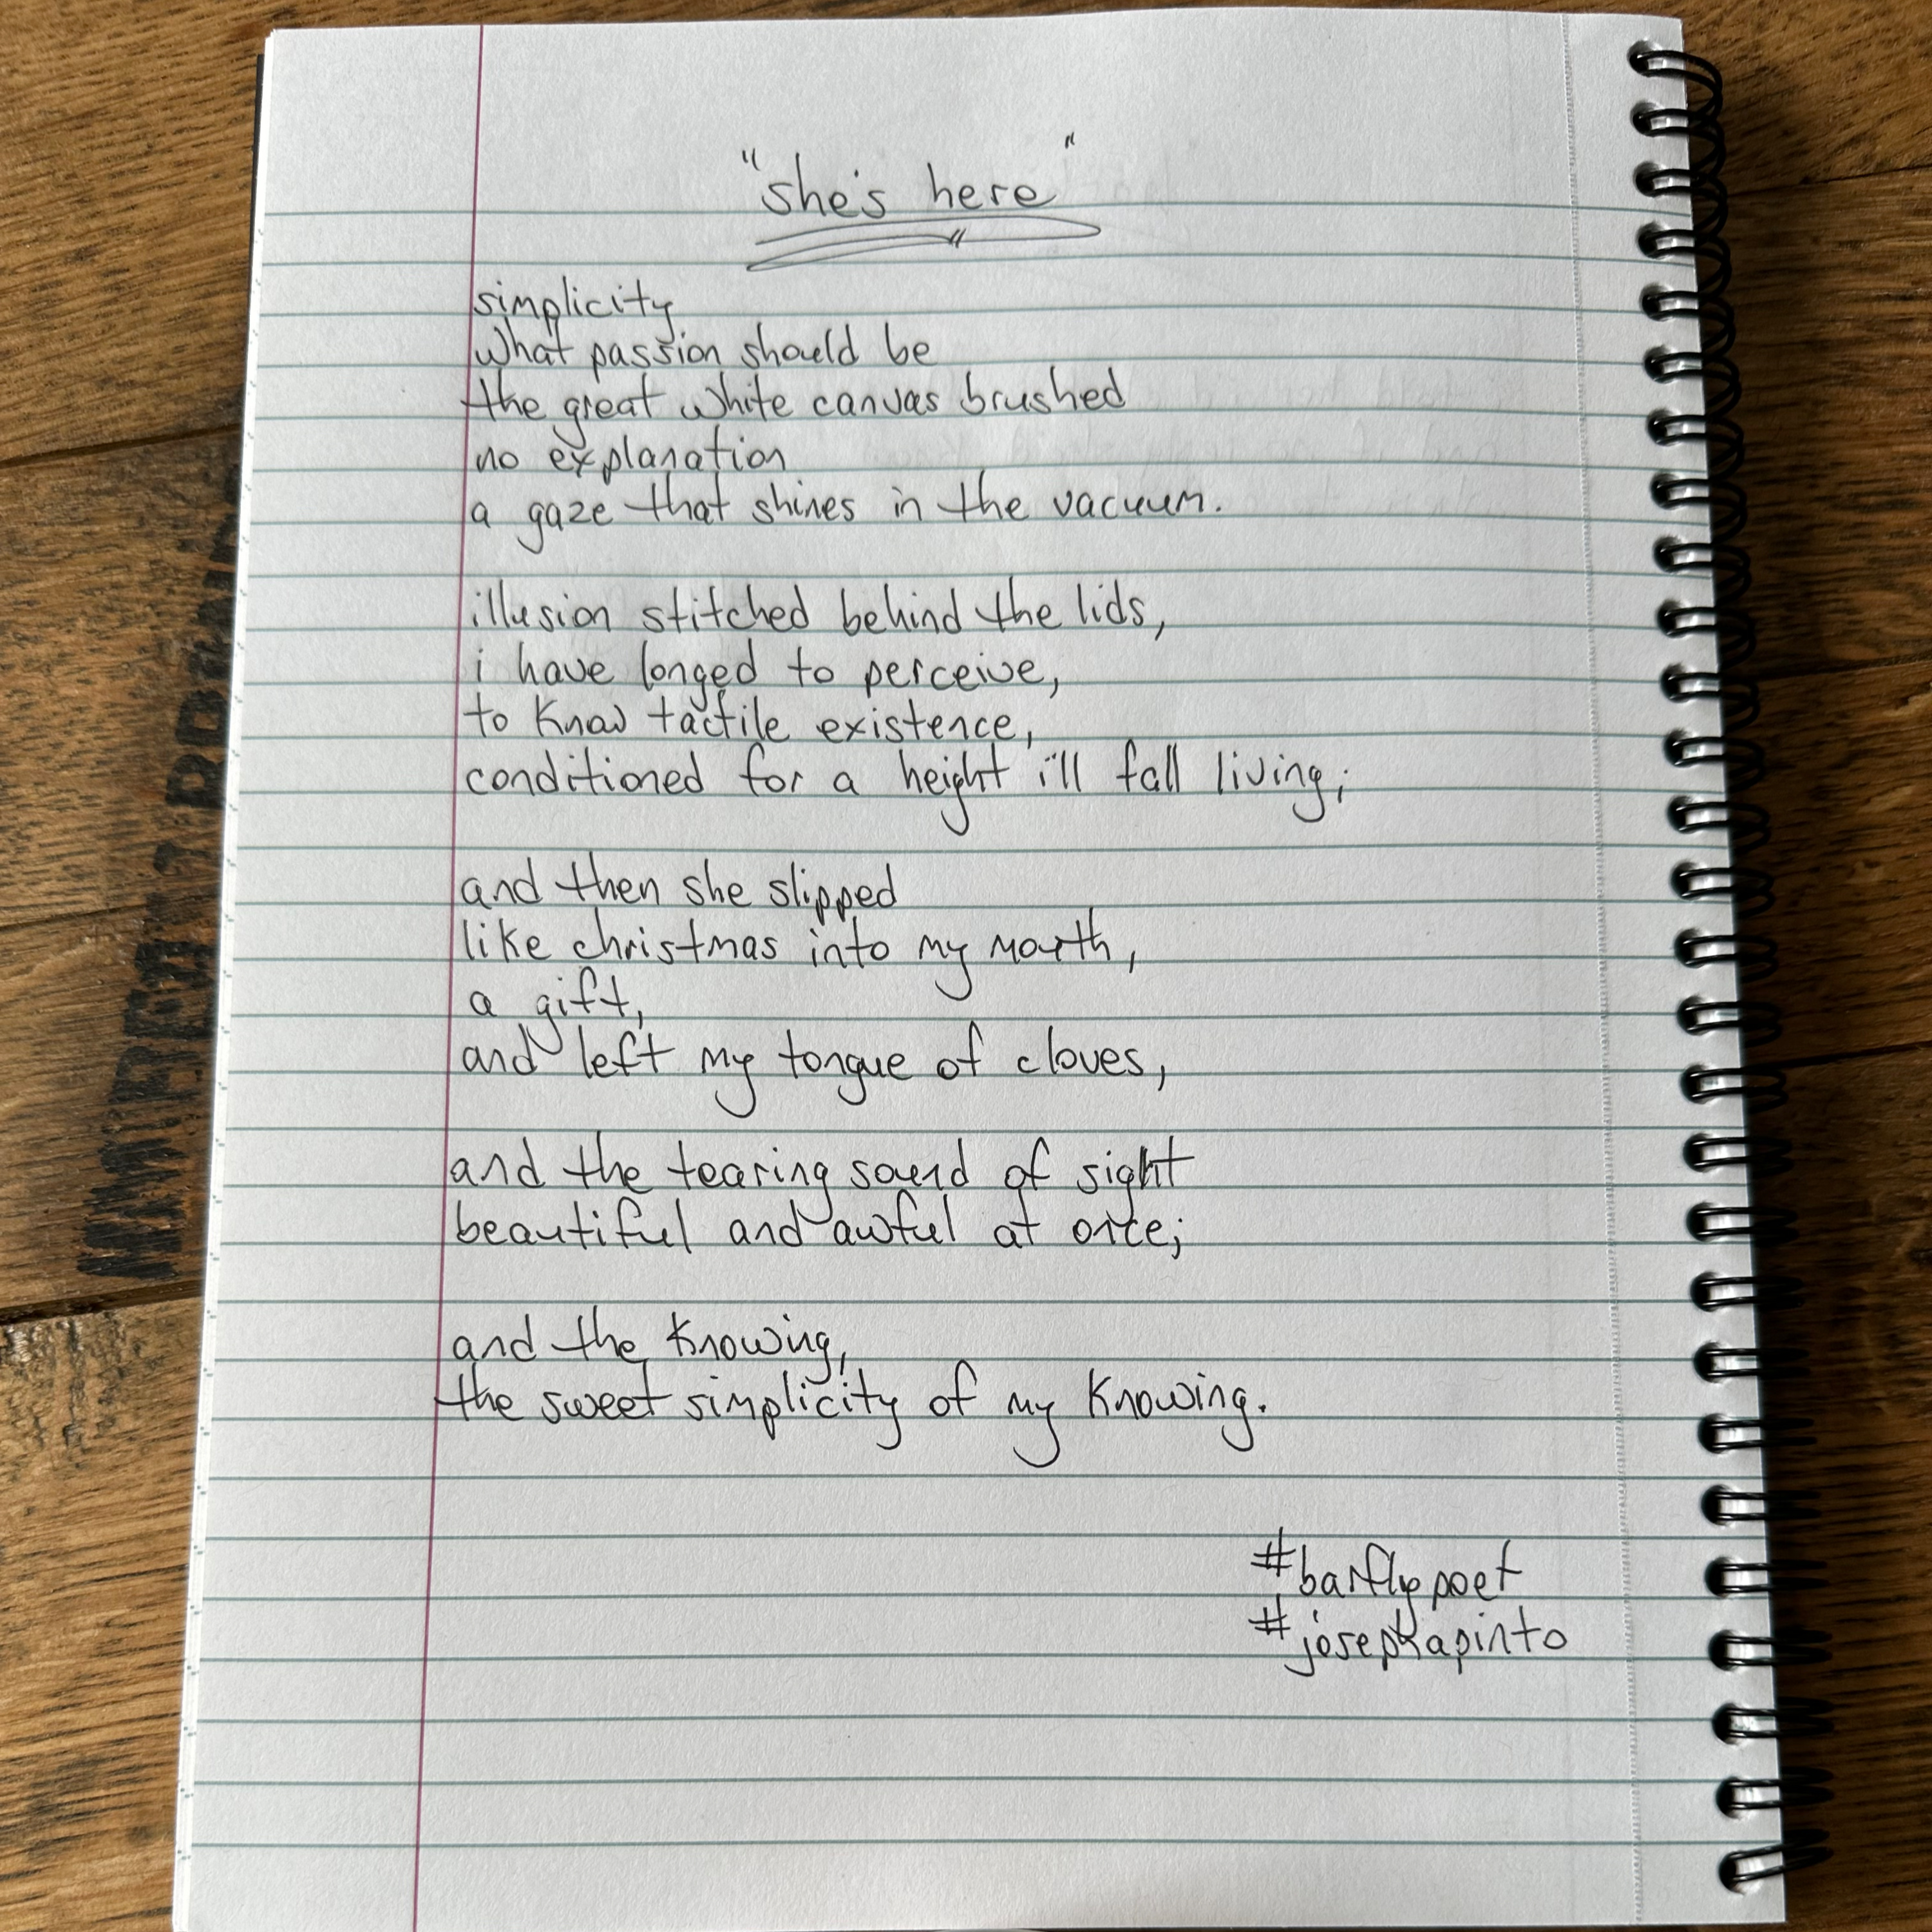 "she's here"
simplicity
what passion should be
the great white canvas brushed
no explanation
a gaze that shines in the vacuum.
illusion stitched behind the lids,
i have longed to perceive,
to know tactile existence,
conditioned for a height i'll fall living;
and then she slipped
like christmas into my mouth,
a gift,
and left my tongue of cloves,
and the tearing sound of sight
beautiful and awful at once;
and the knowing,
the sweet simplicity of my knowing.
#barflypoet
#josephapinto